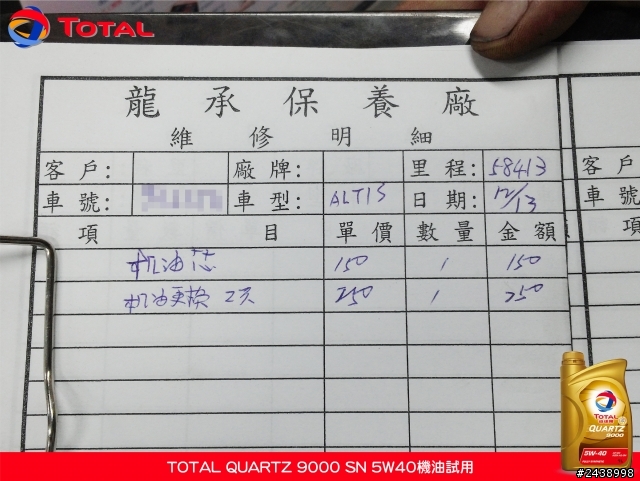 TOTAL
龍承保養廠
維修明細
客戶: 廠牌: 里程: 58413 客戶
車號: 車型: ALTIS 日期: 12/13 車號
項目 單價 數量 金額 項
机油芯 150 1 150
机油更換 工資 250 1 250
TOTAL
QUARTZ
9000
5W-40
TOTAL QUARTZ 9000 SN 5W40機油試用
#2438998